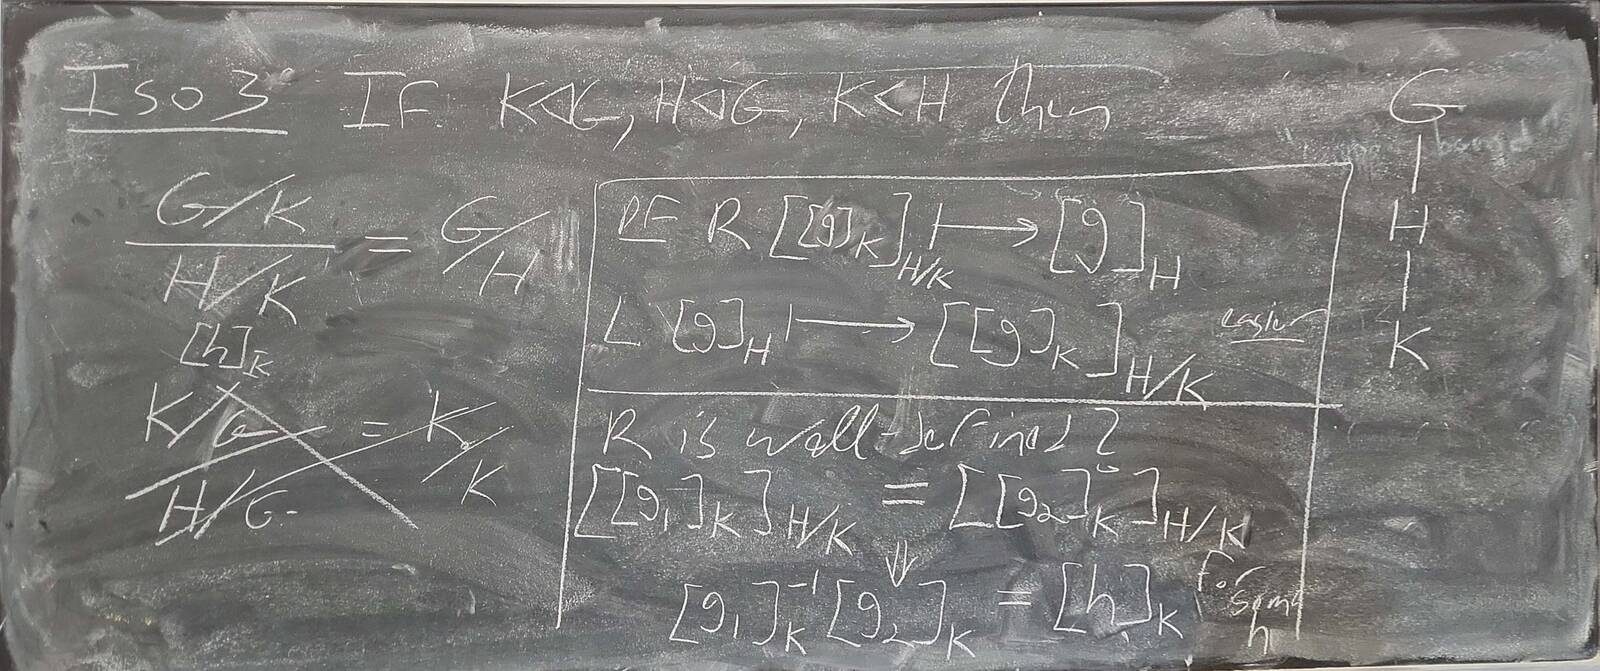 Iso 3 If K⊲G, H⊲G, K<H then
G/K
H/K
= G/H
[h]_K
K/G
H/G
= K/K
PF R [[g]_K]_{H/K} ⟼ [g]_H
L [g]_H ⟼ [[g]_K]_{H/K} easier
R is well-defined?
[[g₁]_K]_{H/K} = [[g₂]_K]_{H/K}
⇓
[g₁]_K^{-1} [g₂]_K = [h]_K for some h
G
|
H
|
K